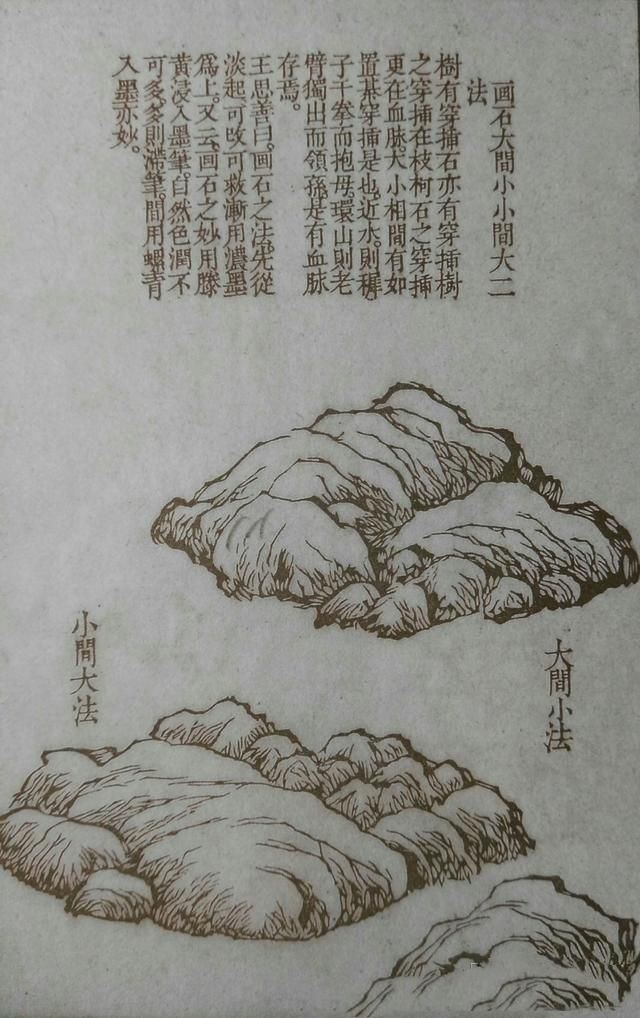 画石大間小小間大二
法
樹有穿插石亦有穿插樹
之穿插在枝柯石之穿插
更在血脉大小相間有如
置碁穿插是也近水則穉
子千拳而抱母環山則老
臂獨出而領孫是有血脉
存焉。
王思善曰。画石之法。先從
淡起可改可救漸用濃墨
爲上。又云。画石之妙用滕
黄浸入墨筆。自然色潤不
可多。多則滯筆。間用螺青
入墨亦妙。
大間小法
小間大法